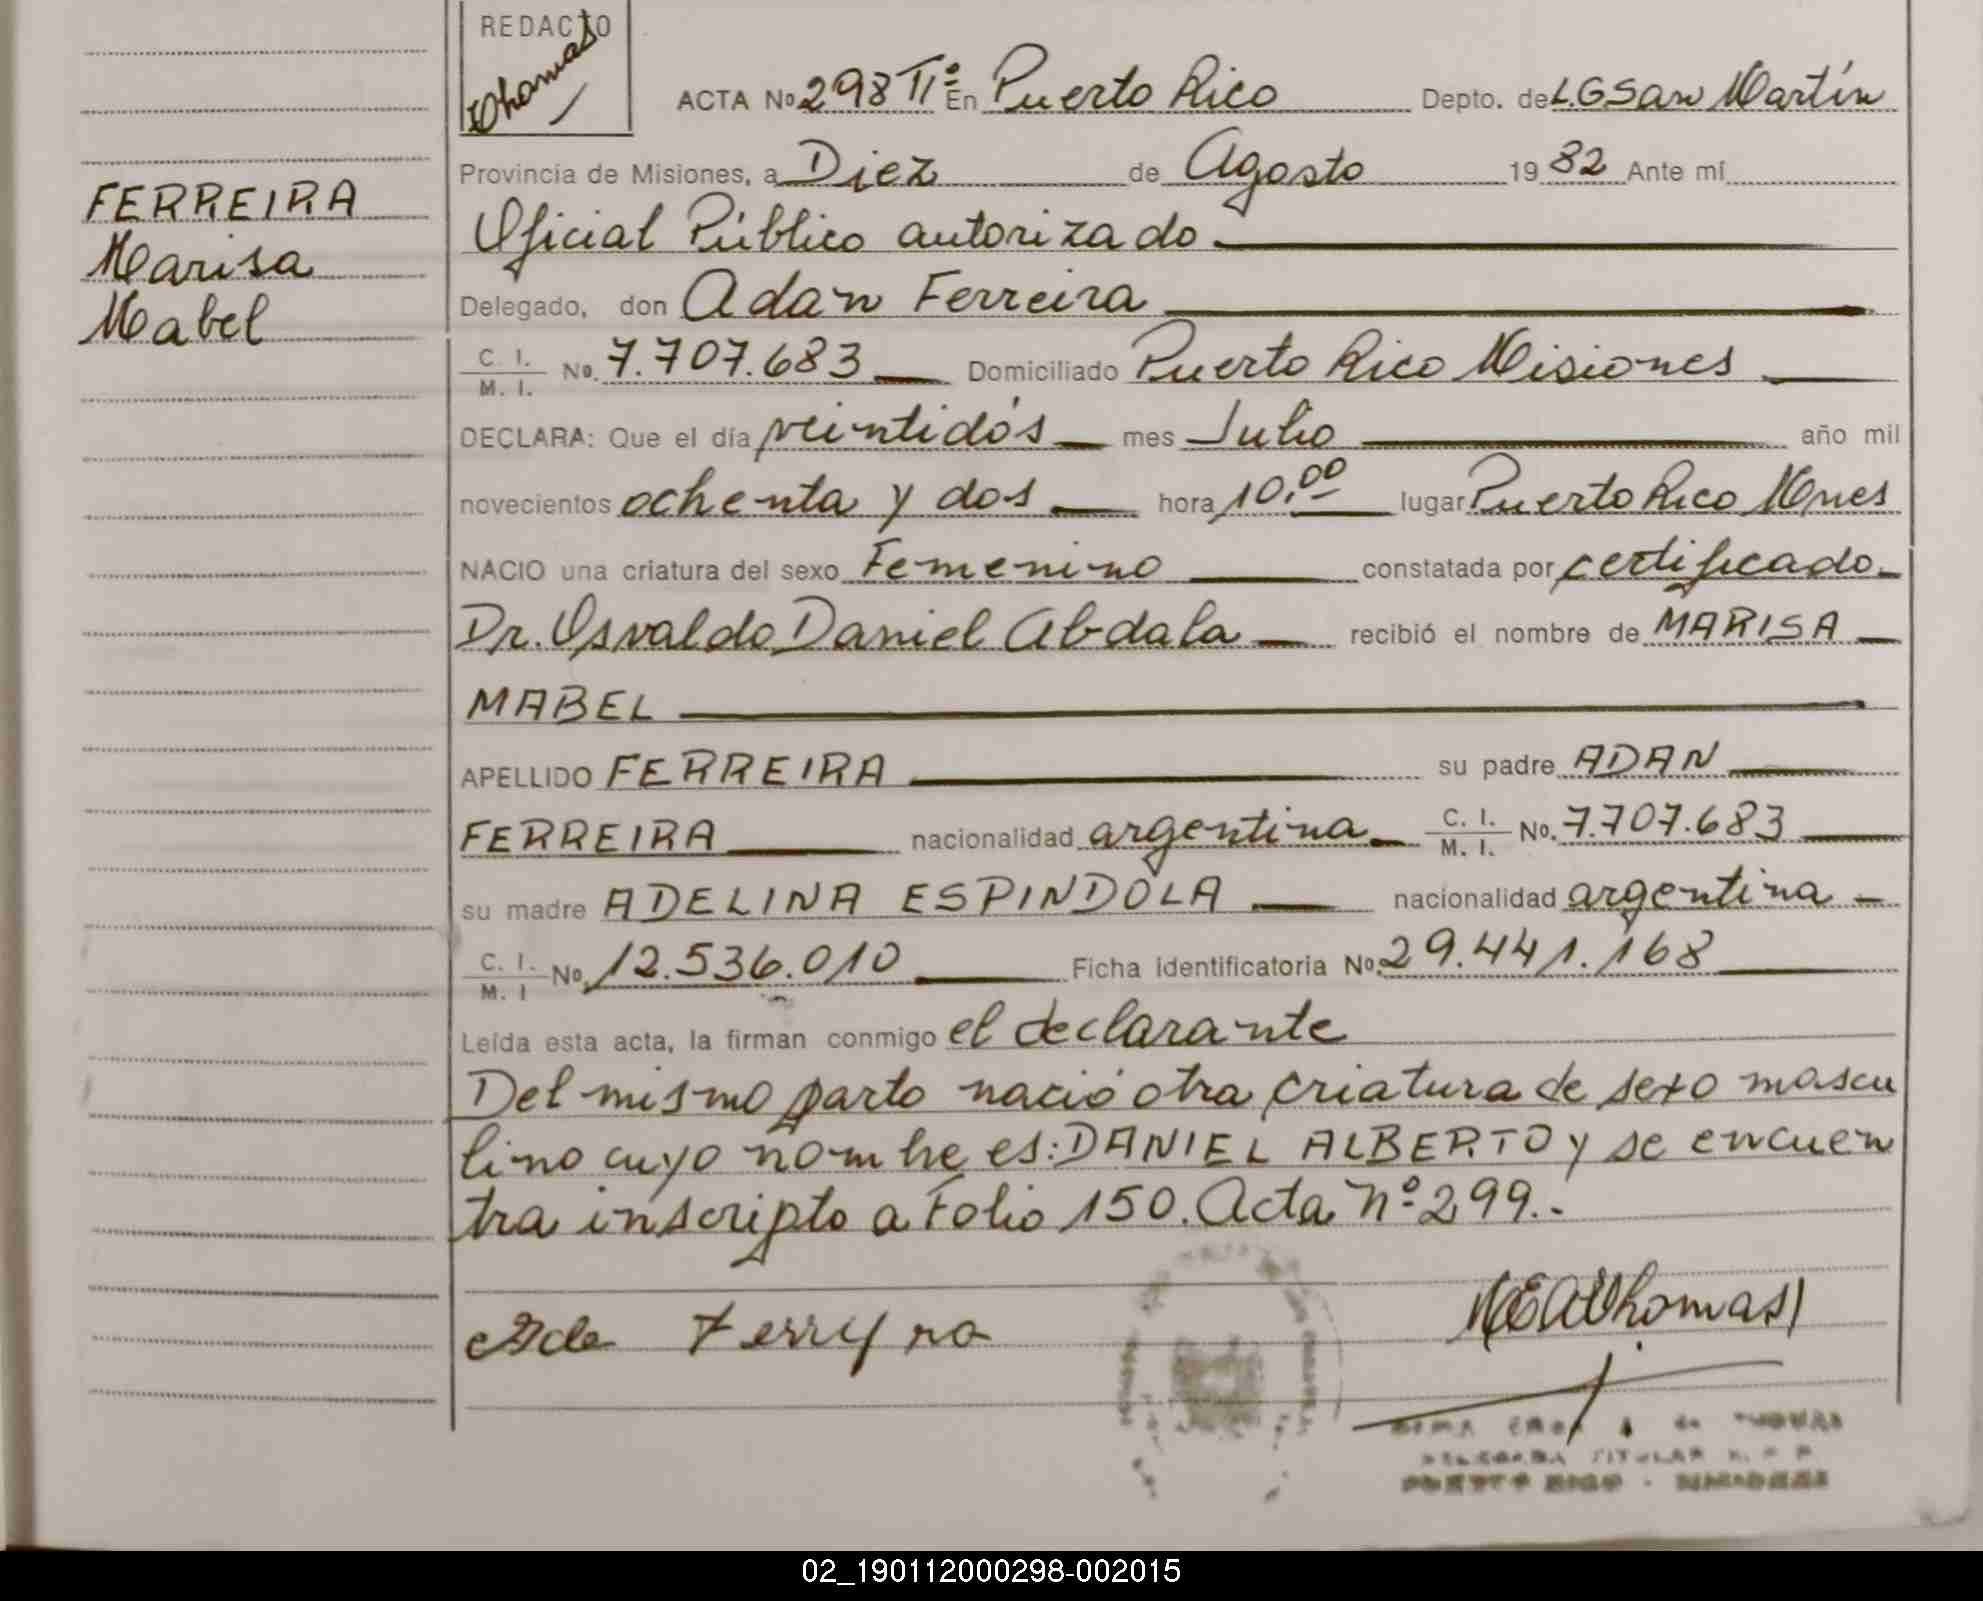 REDACTO
Thomas
ACTA Nº 298 Tº II En Puerto Rico Depto. de L.G San Martín
Provincia de Misiones, a Diez de Agosto 19 82 Ante mí
FERREIRA
Marisa
Mabel
Oficial Público autorizado
Delegado, don Adan Ferreira
C. I.
M. I. No. 7.707.683 Domiciliado Puerto Rico Misiones
DECLARA: Que el día veintidós mes Julio año mil
novecientos ochenta y dos hora 10,00 lugar Puerto Rico Mnes
NACIO una criatura del sexo Femenino constatada por certificado
Dr. Osvaldo Daniel Abdala recibió el nombre de MARISA
MABEL
APELLIDO FERREIRA su padre ADAN
FERREIRA nacionalidad argentina C. I. M. I. No. 7.707.683
su madre ADELINA ESPINDOLA nacionalidad argentina
C. I. M. I No. 12.536.010 Ficha identificatoria No. 29.441.168
Leída esta acta, la firman conmigo el declarante
Del mismo parto nació otra criatura de sexo mascu
lino cuyo nombre es: DANIEL ALBERTO y se encuen
tra inscripto a Folio 150. Acta nº 299.-
Thomas
DELEGADA TITULAR R. P. P
PUERTO RICO - MISIONES
02_190112000298-002015